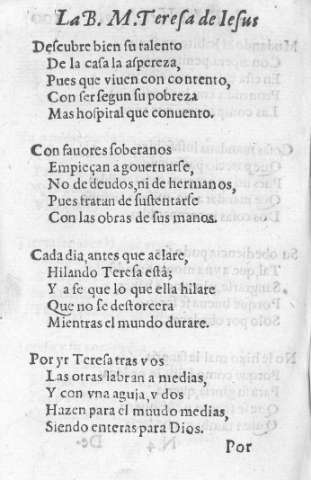 La B. M. Teresa de Iesus
Descubre bien su talento
De la casa la aspereza,
Pues que viuen con contento,
Con ser segun su pobreza
Mas hospital que conuento.
Con fauores soberanos
Empieçan a gouernarse,
No de deudos, ni de hermanos,
Pues tratan de sustentarse
Con las obras de sus manos.
Cada dia antes que aclare,
Hilando Teresa està;
Y a fe que lo que ella hilare
Que no se destorcera
Mientras el mundo durare.
Por yr Teresa tras vos
Las otras labran a medias,
Y con vna aguja, y dos
Hazen para el mundo medias,
Siendo enteras para Dios.
Por